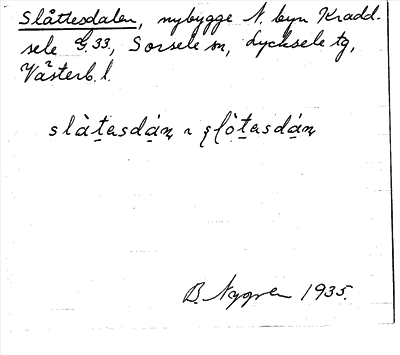 Slåttesdalen, nybygge N. byn Kradd-
sele G.33, Sorsele sn, Lycksele tg,
Västerb. l.
slàt̲asdá̲n
B. Nygren 1935.